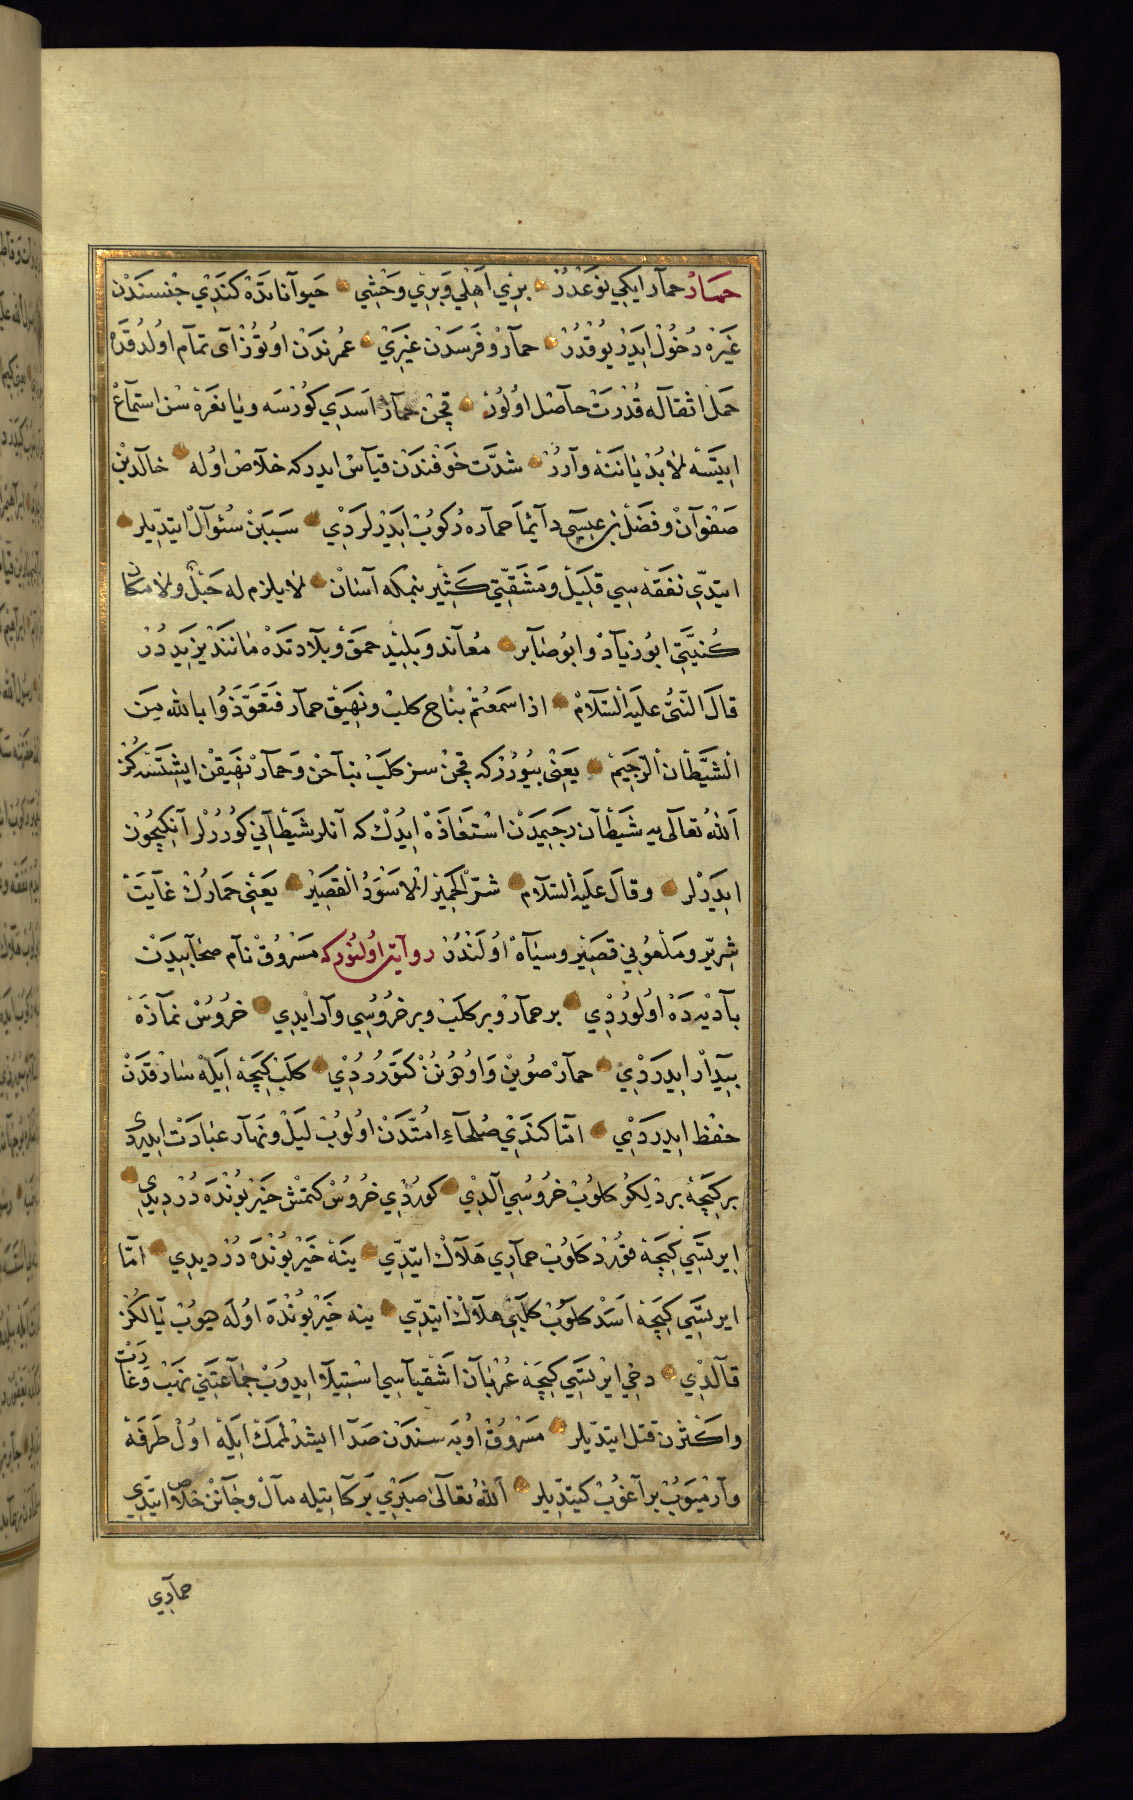 حمار حمار ایکی نوعدر بری اهلی و بری وحشی حیواناتده کندی جنسندن
غیره دخول ایدر یوقدر حمار و فرسدن غیری عمرندن اوتوز آی تمام اولدقده
حمل اثقاله قدرت حاصل اولور قچن حمار اسدی کورسه ویا نعره سن استماع
ایتسه لابد یاننه وارر شدت خوفندن قیاس ایدرکه خلاص اوله خالد بن
صفوان و فضل بن عیسی دائما حماره رکوب ایدرلردی سببن سؤال ایتدیلر
ایتدی نفقه سی قلیل و مشقتی کثیر بنمکه آسان لا یلزم له حبل ولا مکان
کنیتی ابو زیاد و ابو صابر معاند و بلید حمق و بلادتده مانند یزیددر
قال النبی علیه السلام اذا سمعتم بناح کلب و نهیق حمار فتعوذوا بالله من
الشیطان الرجیم یعنی بیوررکه قچن سز کلب بناحن و حمار نهیقن ایشتسه کز
الله تعالی یه شیطان رجیمدن استعاذه ایدک که آنلر شیطانی کوررلر آنکیچون
ایدرلر وقال علیه السلام شر الحمیر الاسود القصیر یعنی حمارک غایت
شریر و ملعونی قصیر و سیاه اولندر روایت اولنورکه مسروق نام صحابیدن
بادیه ده اولوردی بر حمار و بر کلب و بر خروسی وار ایدی خروس نمازه
بیدار ایدردی حمار صوین و اودونن کتوررردی کلب کیجه ایله سارقدن
حفظ ایدردی اما کندی صلحاء امتدن اولوب لیل و نهار عبادت ایدردی
بر کیجه بر دلکو کلوب خروسی آلدی کوردی خروس کتمش خیر بونده در دیدی
ایرتسی کیجه قورد کلوب حماری هلاک ایتدی ینه خیر بونده در دیدی اما
ایرتسی کیجه اسد کلوب کلبی هلاک ایتدی ینه خیر بونده اوله دیوب یالکز
قالدی دخی ایرتسی کیجه عربان اشقیاسی استیلا ایدوب جماعتنی نهب و غارت
و اکثرن قتل ایتدیلر مسروق اوبه سندن صدا ایشدلمامک ایله اول طرفه
وارمیوب براغوب کیتدیلر الله تعالی صبری برکاتیله مال و جانن خلاص ایتدی
حماری